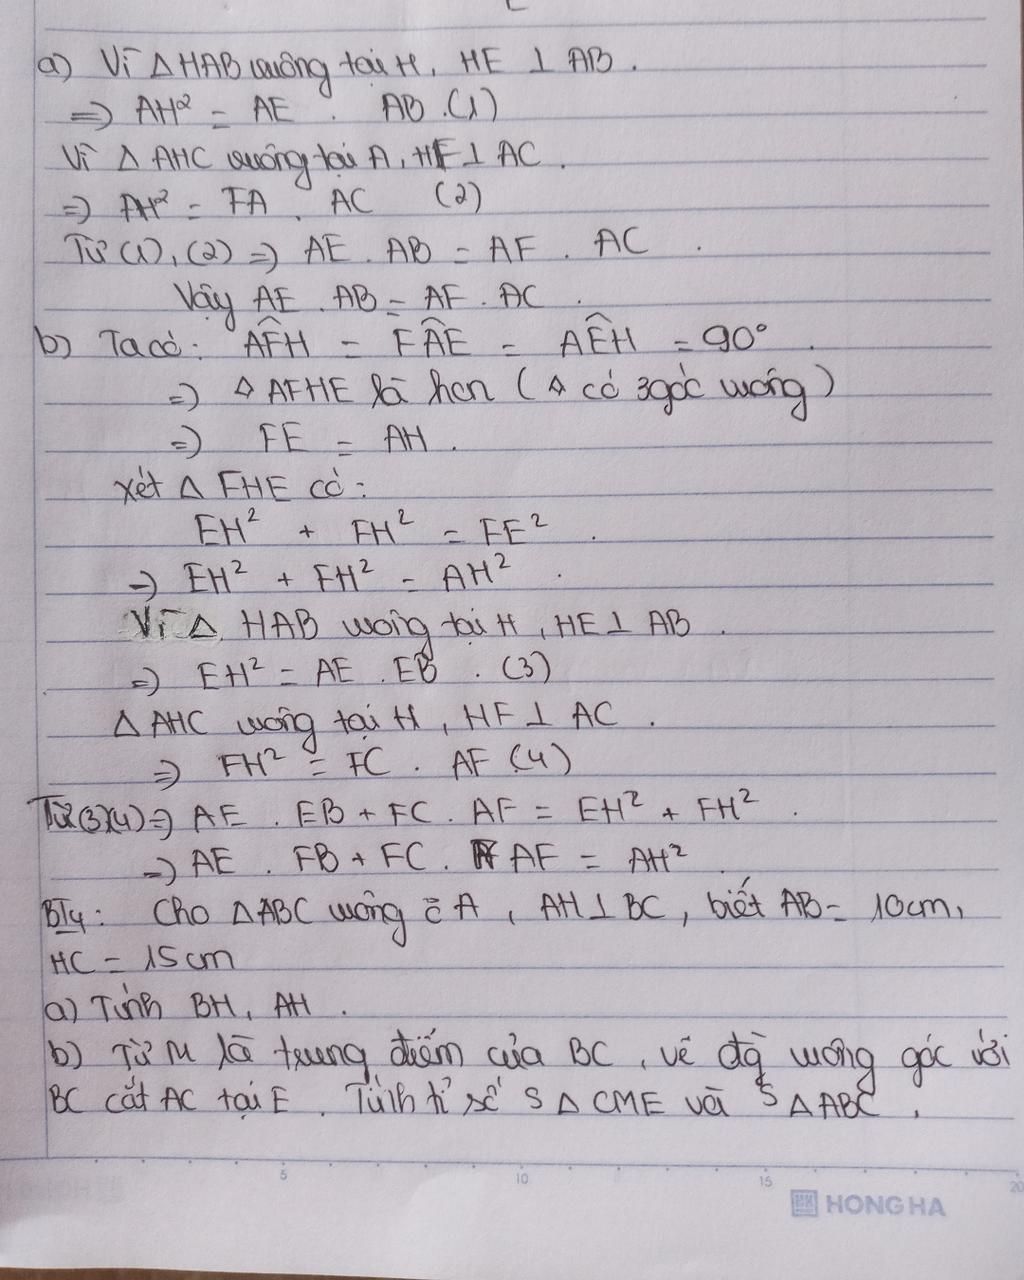 a) Vì △HAB vuông tại H, HE ⊥ AB.
=> AH² = AE . AB . (1)
Vì △ AHC vuông tại A, HF ⊥ AC.
=> AH² = FA . AC (2)
Từ (1), (2) => AE . AB = AF . AC .
Vậy AE . AB = AF . AC .
b) Ta có: AF̂H = FÂE = AÊH = 90° .
=> ◊ AFHE là hcn ( ◊ có 3 góc vuông )
=> FE = AH .
Xét △ FHE có :
EH² + FH² = FE² .
=> EH² + FH² = AH² .
Vì △ HAB vuông tại H, HE ⊥ AB .
=> EH² = AE . EB . (3)
△ AHC vuông tại H, HF ⊥ AC .
=> FH² = FC . AF (4)
Từ (3)(4) => AE . EB + FC . AF = EH² + FH² .
=> AE . FB + FC . AF = AH² .
BT4: Cho △ABC vuông ở A , AH ⊥ BC, biết AB = 10cm,
HC = 15cm
a) Tính BH, AH .
b) Từ M là trung điểm của BC, vẽ đg̀ vuông góc với
BC cắt AC tại E . Tính tỉ số S △ CME và S △ABC .
5 10 15 20
HONG HA